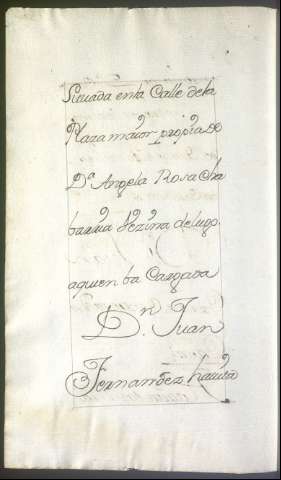 Situada enla Calle dela
Plaza maior propia de
Dª Angela Rosa Cha
barria Vezina delugo.
aquien ba Cargada
Dn Juan
Fernandez havita